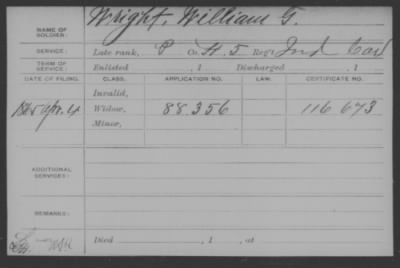 Wright, William G.
NAME OF SOLDIER:
SERVICE: Late rank, P Co. H. 5 Reg't Ind Cav
TERM OF SERVICE: Enlisted , 1 Discharged , 1
DATE OF FILING. CLASS. APPLICATION NO. LAW. CERTIFICATE NO.
Invalid,
Widow, 88.356 116 673
Minor,
ADDITIONAL SERVICES:
REMARKS:
Died , 1 , at